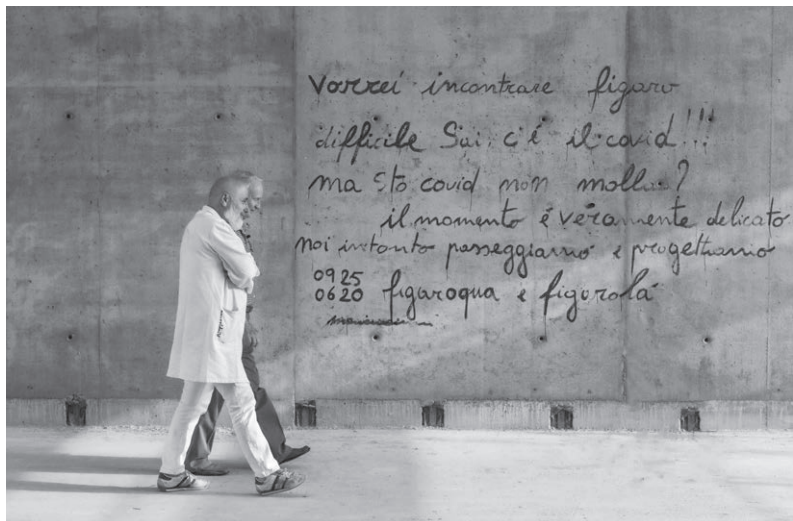 Vorrei incontrare figaro
difficile Sai, c'é il covid!!!
ma sto covid non molla?
il momento é veramente delicato
noi intanto passeggiamo e progettiamo
0925
0620 figaroqua e figarolá